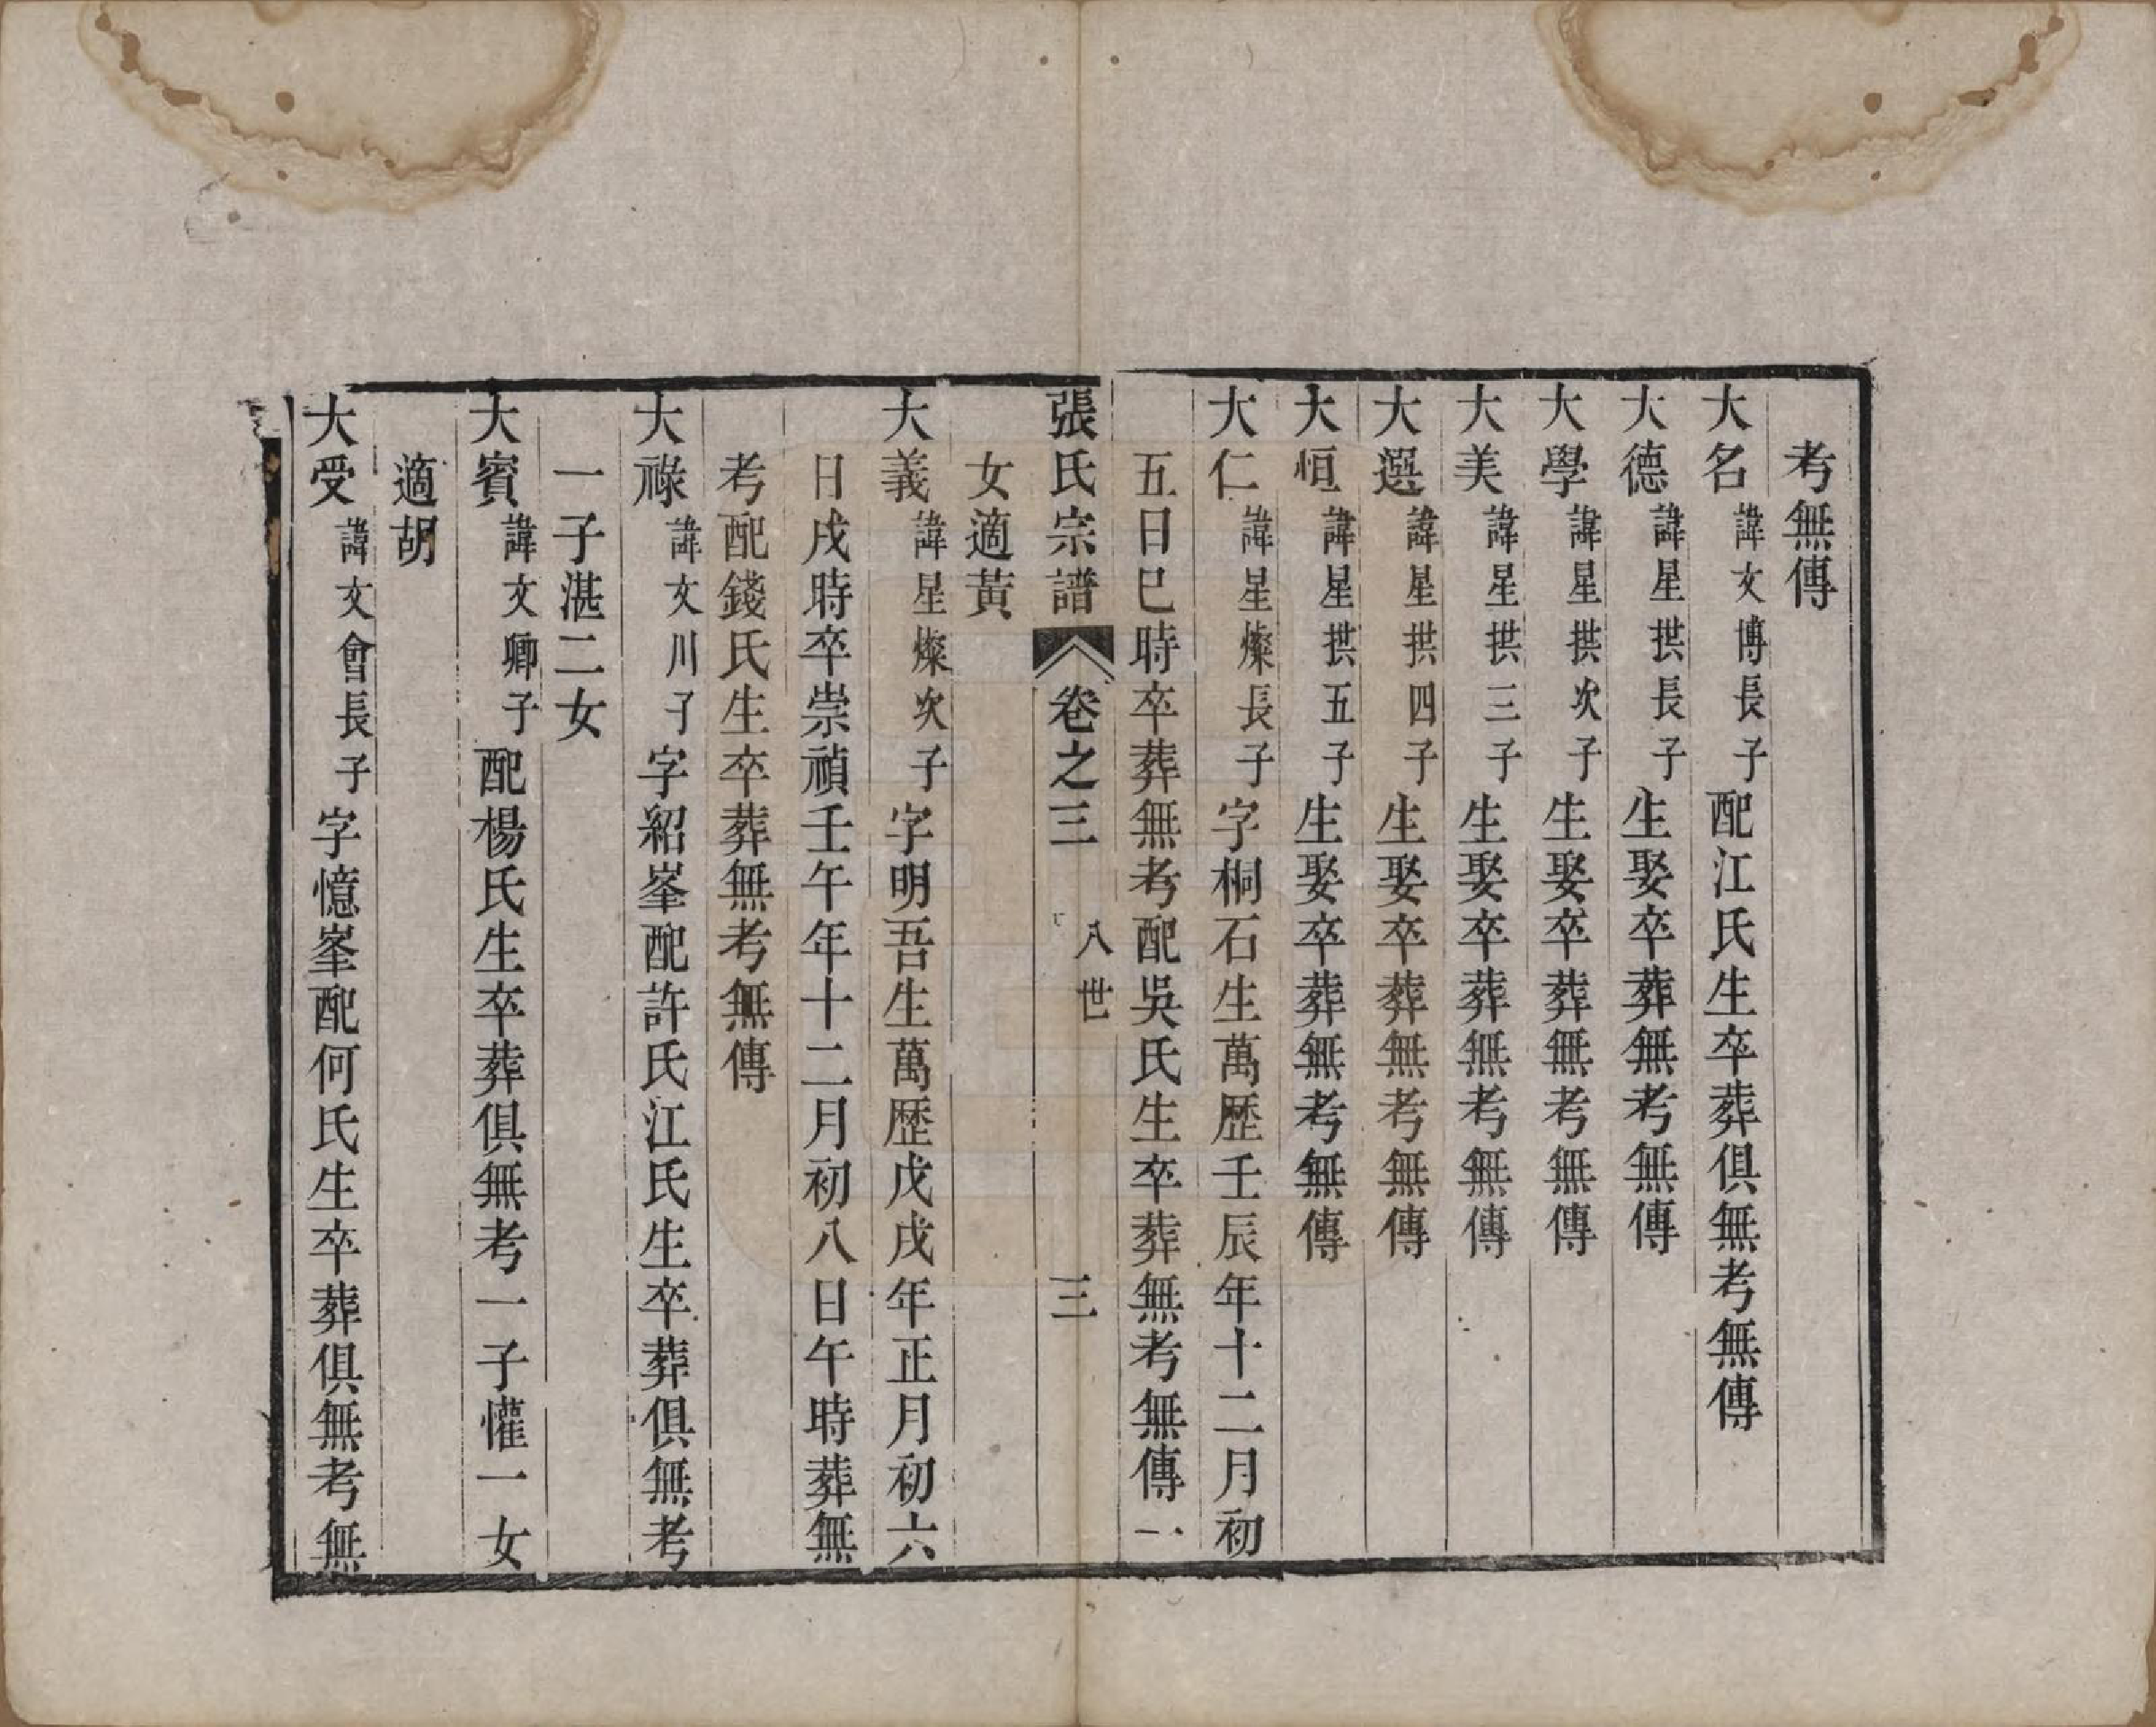 考無傳
大名諱文博長子配江氏生卒葬俱無考無傳
大德諱星拱長子生娶卒葬無考無傳
大學諱星拱次子生娶卒葬無考無傳
大美諱星拱三子生娶卒葬無考無傳
大選諱星拱四子生娶卒葬無考無傳
大恒諱星拱五子生娶卒葬無考無傳
大仁諱星燦長子字桐石生萬歷壬辰年十二月初
五日巳時卒葬無考配吳氏生卒葬無考無傳一
張氏宗譜 卷之三 八世 三
女適黃
大義諱星燦次子字明吾生萬歷戊戌年正月初六
日戌時卒崇禎壬午年十二月初八日午時葬無
考配錢氏生卒葬無考無傳
大祿諱文川子字紹峯配許氏江氏生卒葬俱無考
一子湛二女
大賓諱文卿子配楊氏生卒葬俱無考一子懽一女
適胡
大受諱文會長子字憶峯配何氏生卒葬俱無考無